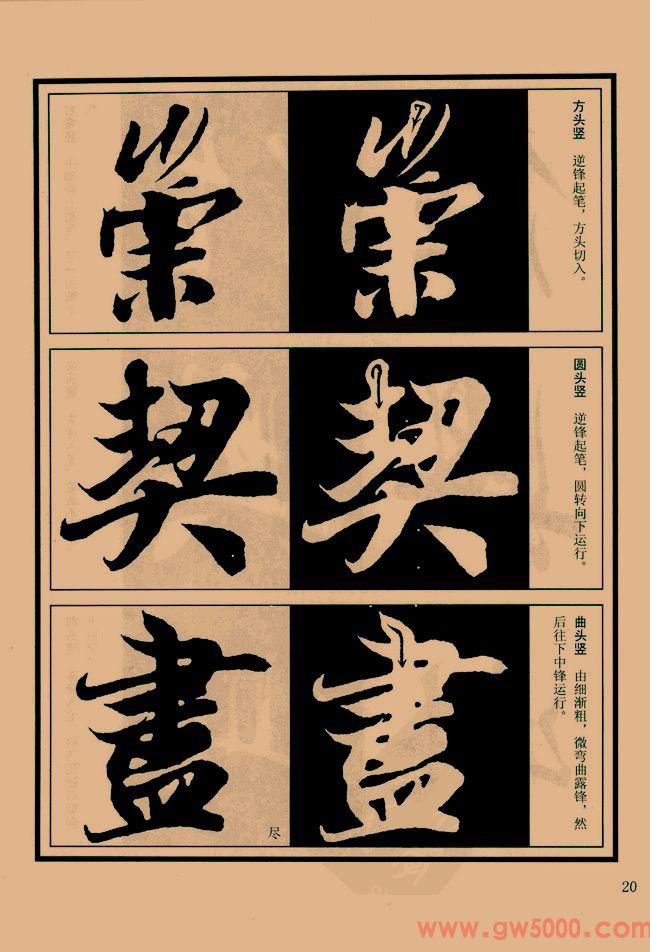 崇
方头竖 逆锋起笔，方头切入。
契
圆头竖 逆锋起笔，圆转向下运行。
盡
尽
曲头竖 由细渐粗，微弯曲露锋，然
后往下中锋运行。
20
www.gw5000.com